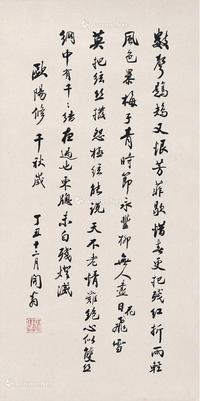 數聲鶗鴂又報芳菲歇惜春更把殘紅折雨輕
風色暴梅子青時節永豐柳無人盡日花飛雪
莫把絃絲撥怨極絃能說天不老情難絕心似雙絲
網中有千千結夜過也東牕未白殘燈滅
歐陽修 千秋歲
丁丑十二月